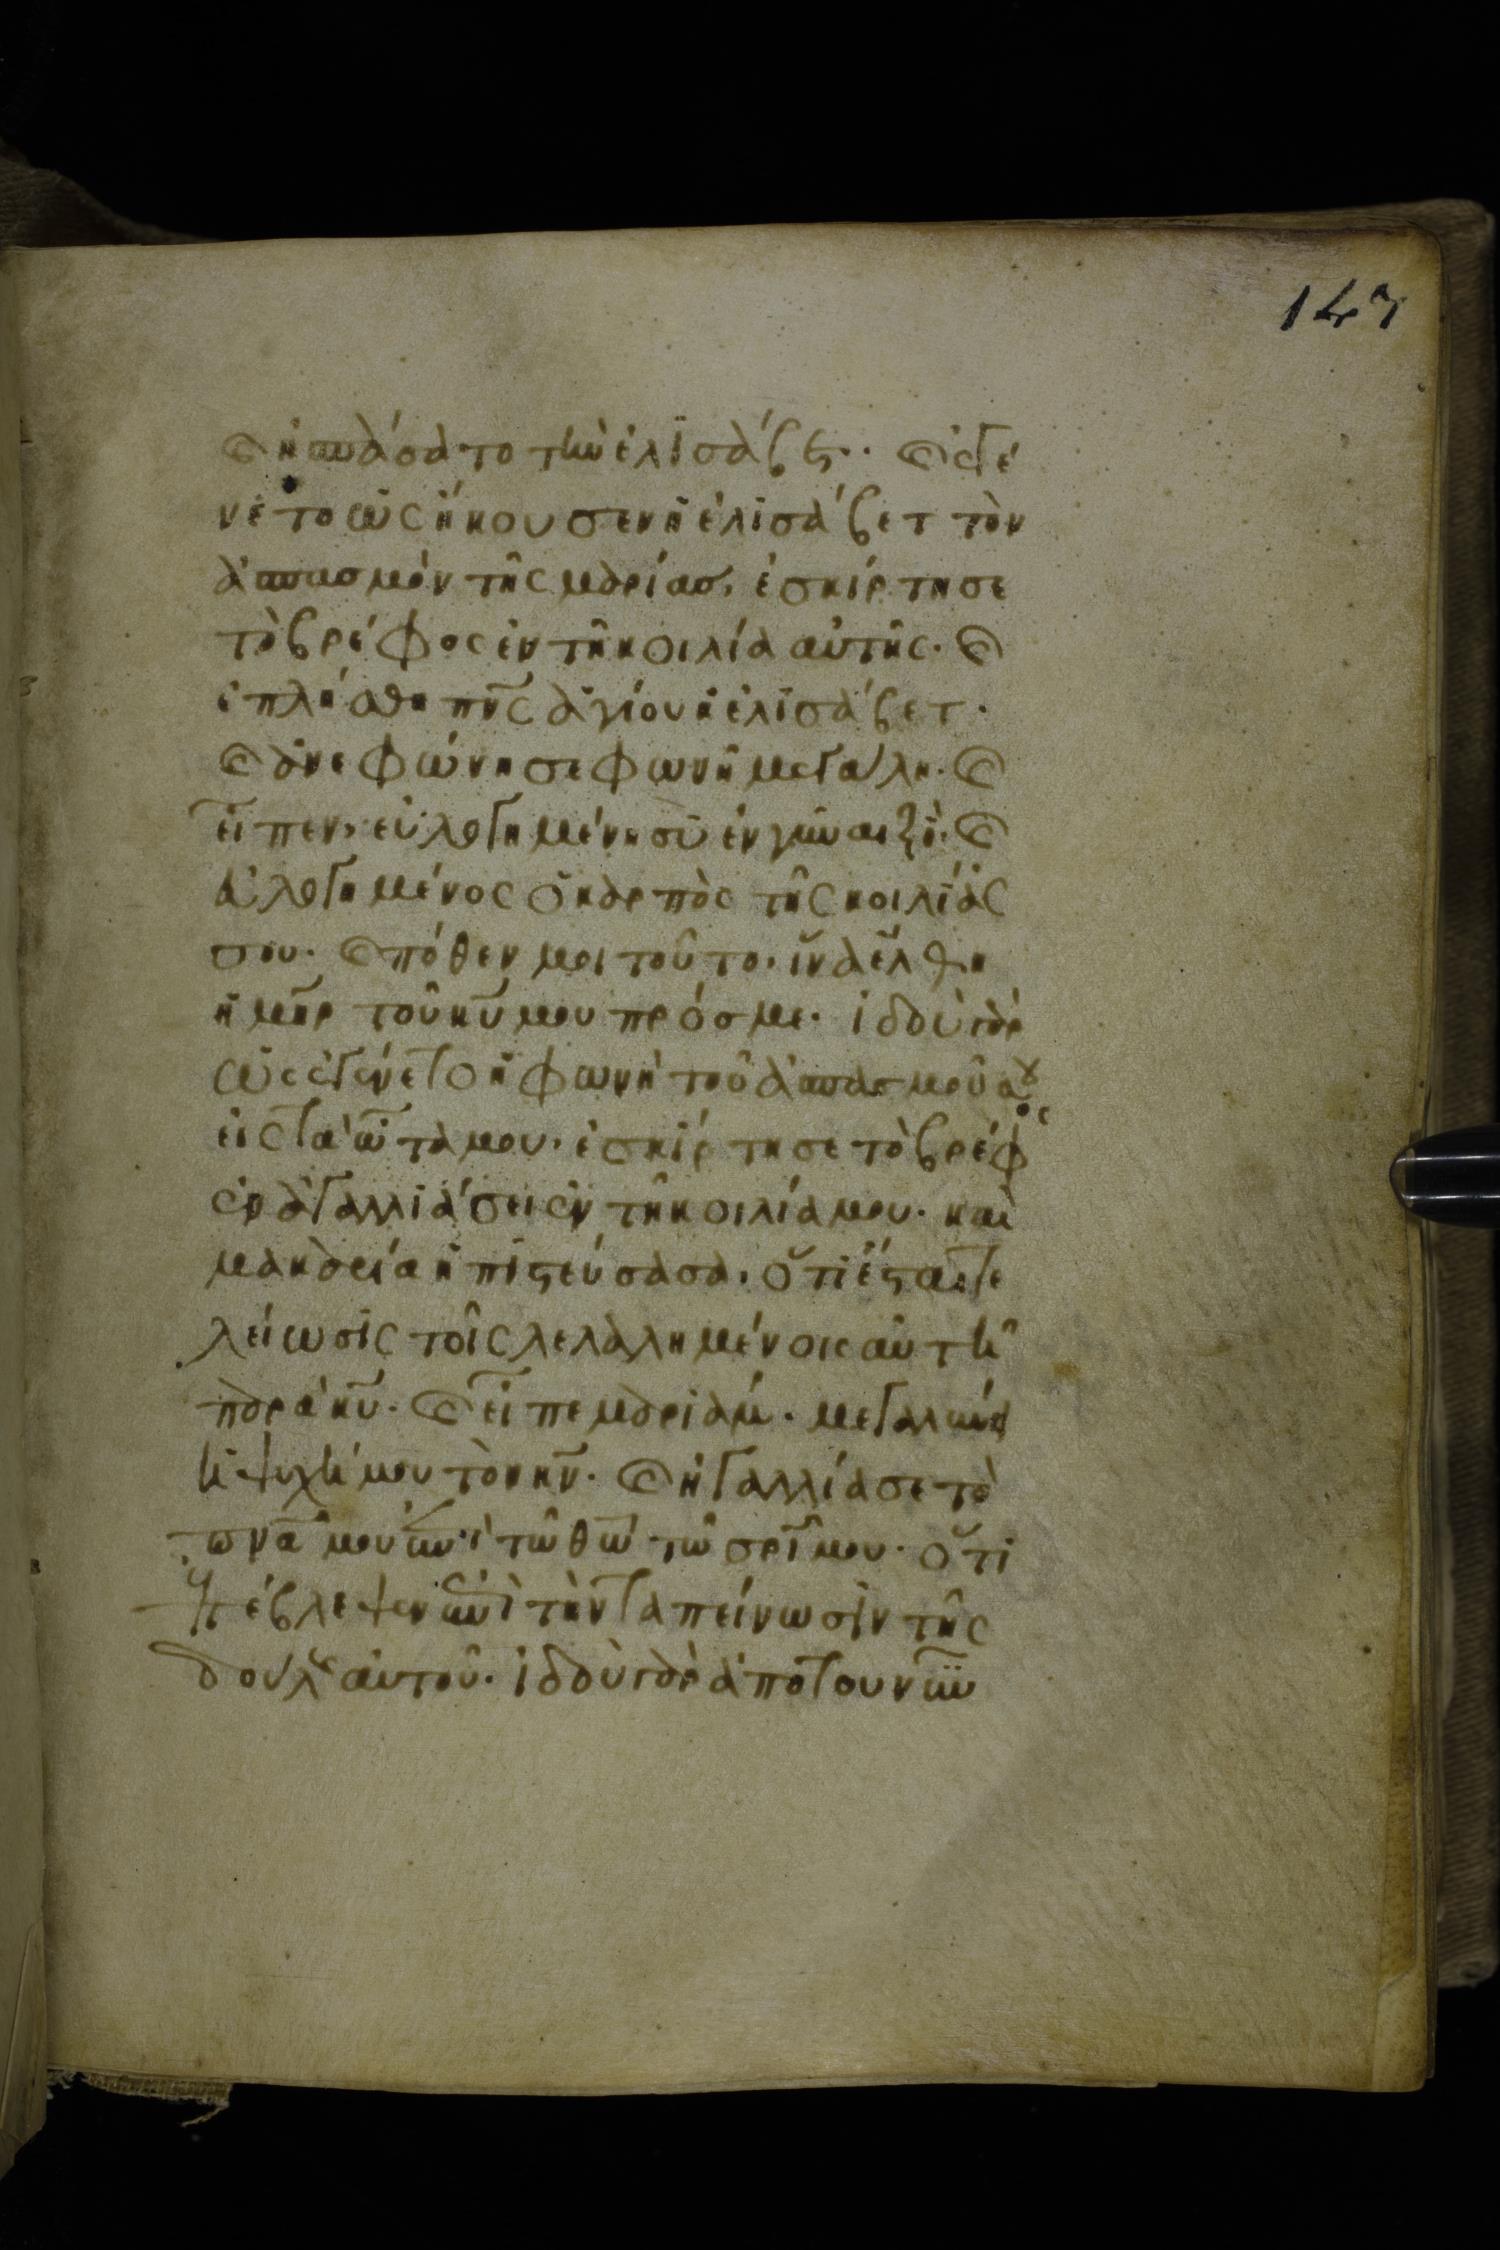 147
καὶ ἠσπάσατο τὴν ἐλισάβετ· καὶ ἐγέ
νετο ὡς ἤκουσεν ἡ ἐλισάβετ τὸν
ἀσπασμὸν τῆς μαρίας, ἐσκίρτησε
τὸ βρέφος ἐν τῆ κοιλία αὐτῆς· καὶ
ἐπλήσθη πνς ἁγίου ἡ ἐλισάβετ·
καὶ ἀνεφώνησε φωνῆ μεγάλη· καὶ
εἶπεν, εὐλογημένη σὺ ἐν γυναιξὶ· καὶ
εὐλογημένος ὁ καρπὸς τῆς κοιλίας
σου· καὶ πόθεν μοι τοῦτο, ἵνα ἔλθη
ἡ μηρ τοῦ κυ μου πρόσ με· ἰδοὺ γὰρ
ὡς ἐγένετο ἡ φωνὴ τοῦ ἀσπασμοῦ σου
εἰς τὰ ὦτά μου, ἐσκίρτησε τὸ βρέφος
ἐν ἀγαλλιάσει ἐν τῆ κοιλία μου· καὶ
μακαρία ἡ πιστεύσασα, ὅτι ἔσται τε
λείωσις τοῖς λελαλημένοις αὐτῆ
παρὰ κυ· καὶ εἶπε μαριάμ· μεγαλύνει
ἡ ψυχή μου τὸν κν· καὶ ἠγαλλίασε τὸ
πνα μου ἐπὶ τῶ θω τῶ σρι μου· ὅτι
ἐπέβλεψεν ἐπὶ τὴν ταπείνωσιν τῆς
δούλης αὐτοῦ· ἰδοὺ γὰρ ἀπὸ τοῦ νῦν